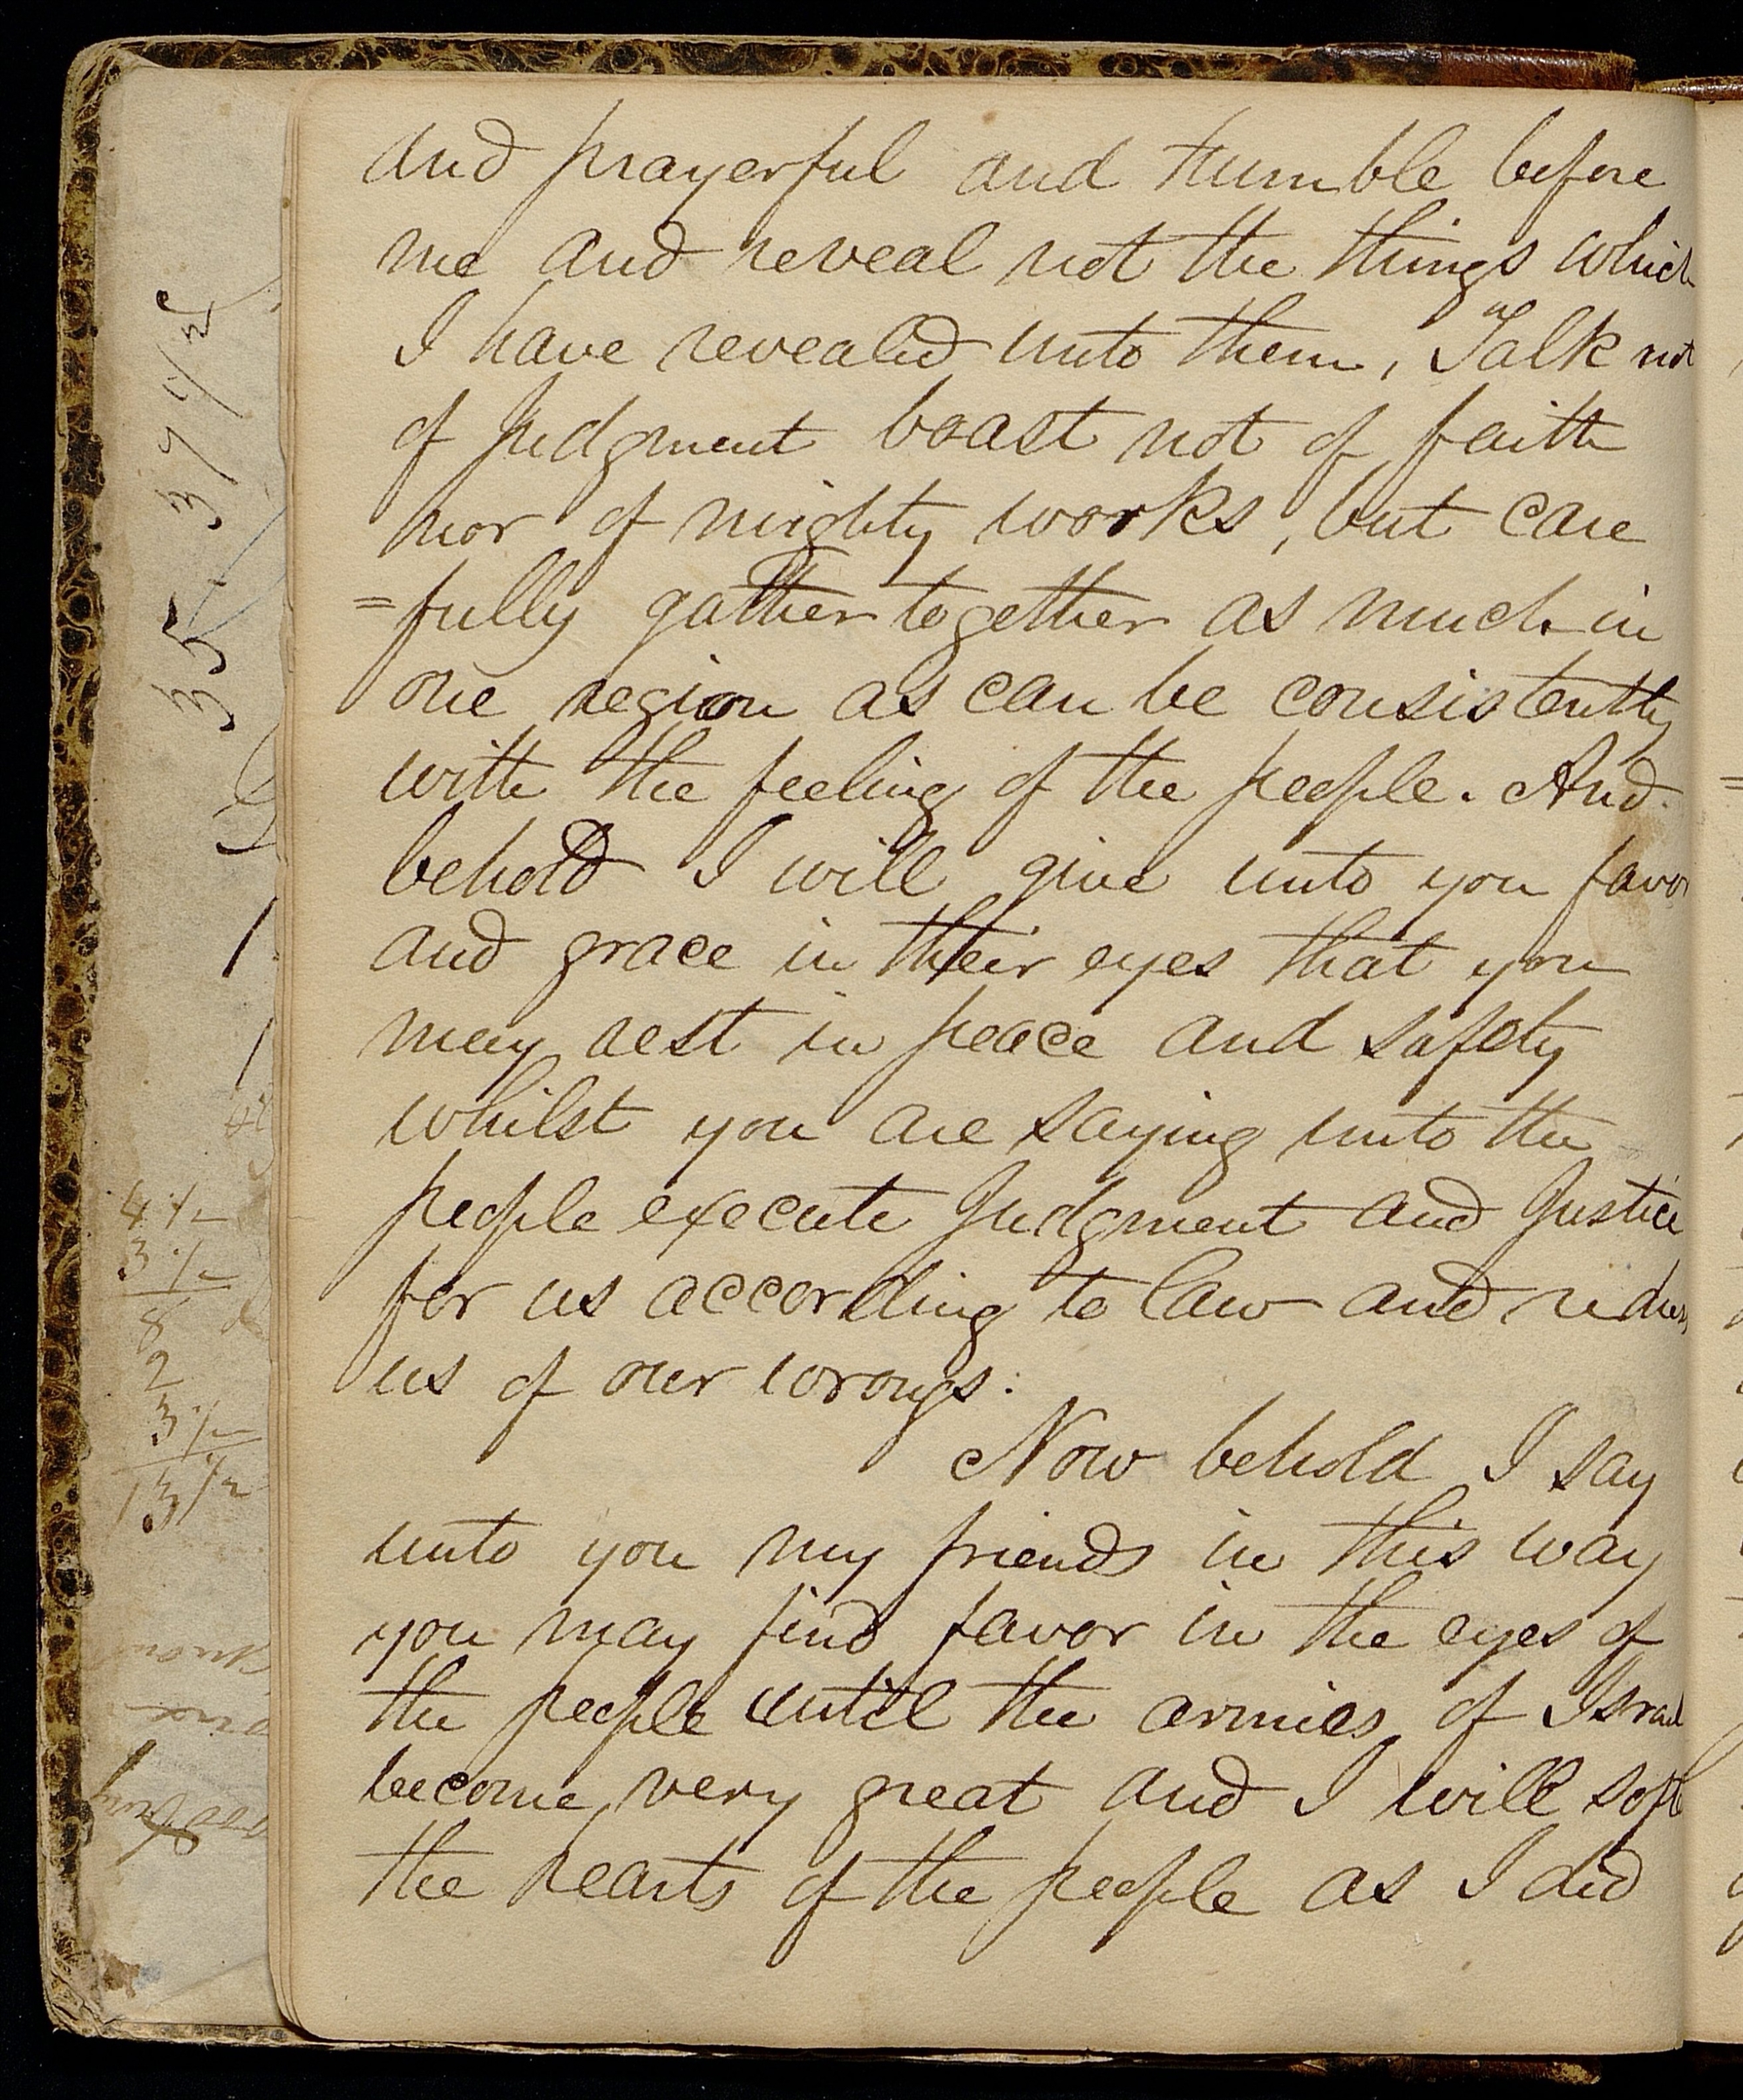 and prayerful and humble before
me and reveal not the things which
I have revealed unto them, Talk not
of Judgment boast not of faith
nor of mighty works, but care
=fully gather together as much in
one region as can be consistently
with the feeling of the people. And
behold I will give unto you favor
and grace in their eyes that you
may rest in peace and safety
whilst you are saying unto the
people execute Judgment and Justice
for us according to law and redress
us of our wrongs.
Now behold I say
unto you my friends in this way
you may find favor in the eyes of
the people until the armies of Israel
become very great and I will soft
the hearts of the people as I did
35 37 1/2
4 1/2
3 1/2
8
2
3 1/2
13 1/2